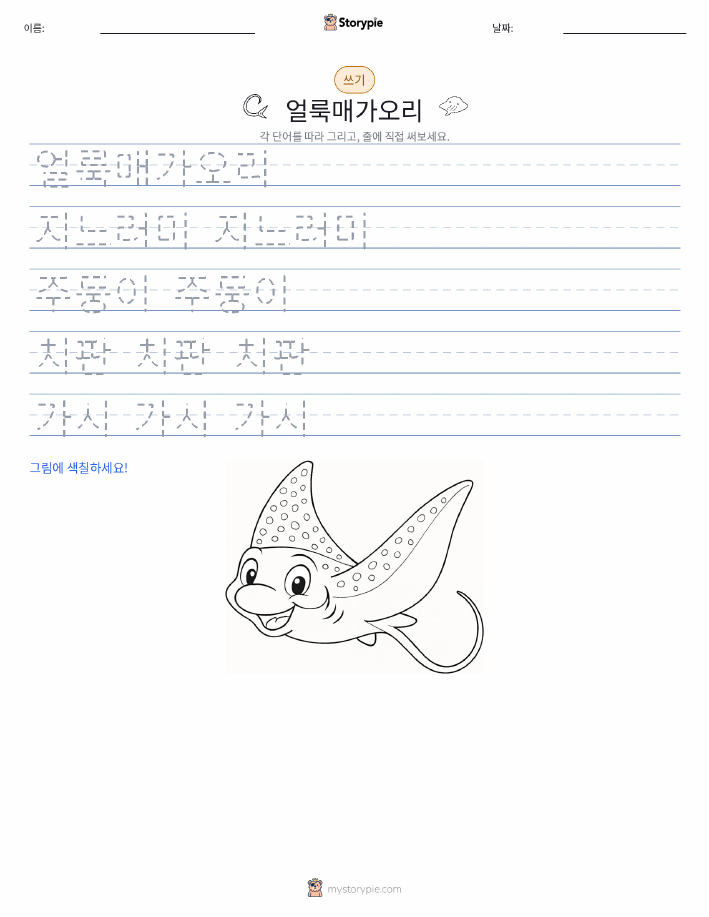 이름:
Storypie
날짜:
쓰기
얼룩매가오리
각 단어를 따라 그리고, 줄에 직접 써보세요.
얼룩매가오리
지느러미 지느러미
주둥이 주둥이
치판 치판 치판
가시 가시 가시
그림에 색칠하세요!
mystorypie.com